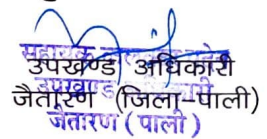 उपखण्ड अधिकारी
उपखण्ड
जैतारण (जिला-पाली)
जैतारण (पाली)